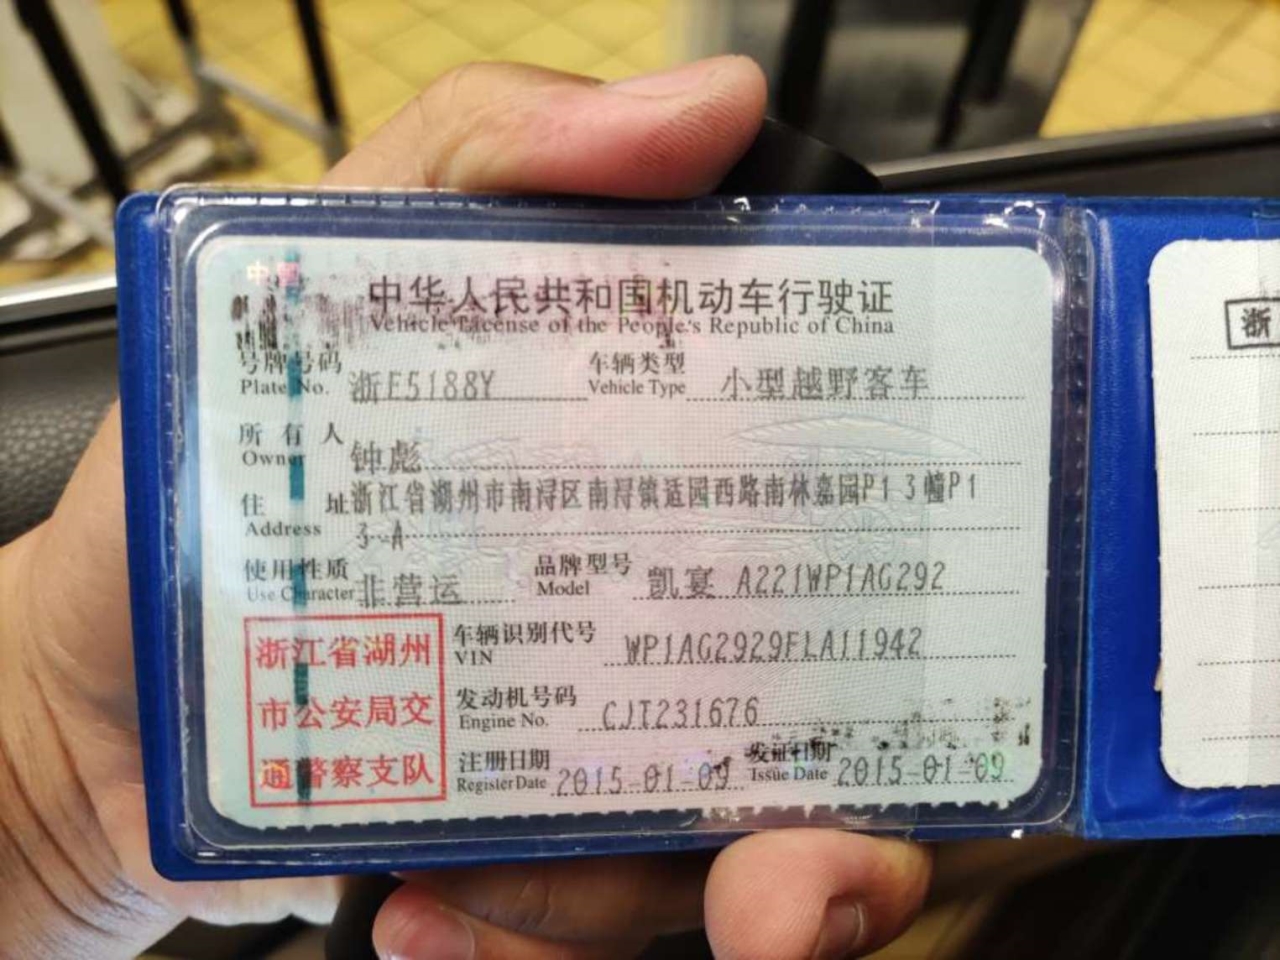 中国
中华人民共和国机动车行驶证
Vehicle License of the People's Republic of China
号牌号码 浙E5188Y 车辆类型 小型越野客车
Plate No. Vehicle Type
所有人 钟彪
Owner
住址 浙江省湖州市南浔区南浔镇适园西路南林嘉园P13幢P1
Address 3-A
使用性质 非营运 品牌型号 凯宴 A221WP1AG292
Use Character Model
浙江省湖州
市公安局交
通警察支队
车辆识别代号 WP1AG2929FLA11942
VIN
发动机号码 CJT231676
Engine No.
注册日期 2015-01-09 发证日期 2015-01-09
Register Date Issue Date
浙